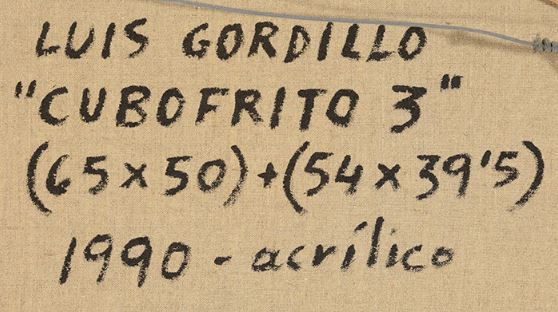 LUIS GORDILLO
"CUBOFRITO 3"
(65 x 50) + (54 x 39'5)
1990 - acrílico